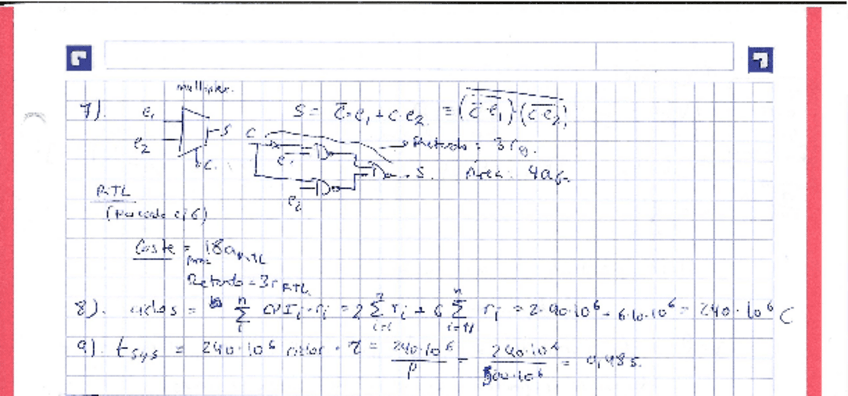 multiplexor
7).
e₁
e₂
S
C
S = c̅·e₁ + c·e₂ = \overline{(\overline{c̅·e₁})·(\overline{c·e₂})}
C
e₁
e₂
S.
→ Retardo: 3τg.
Área: 4ag
RTL
Coste = 18a RTL
Retardo = 3τ RTL
8). ciclos = Σ CPIᵢ·rᵢ = 2 Σ rᵢ + 6 Σ rᵢ = 2·90·10⁶ + 6·10·10⁶ = 240·10⁶ C
9). t sys = 240·10⁶ ciclos · τ = 240·10⁶ / = 240·10⁶ / 500·10⁶ = 0,48s.